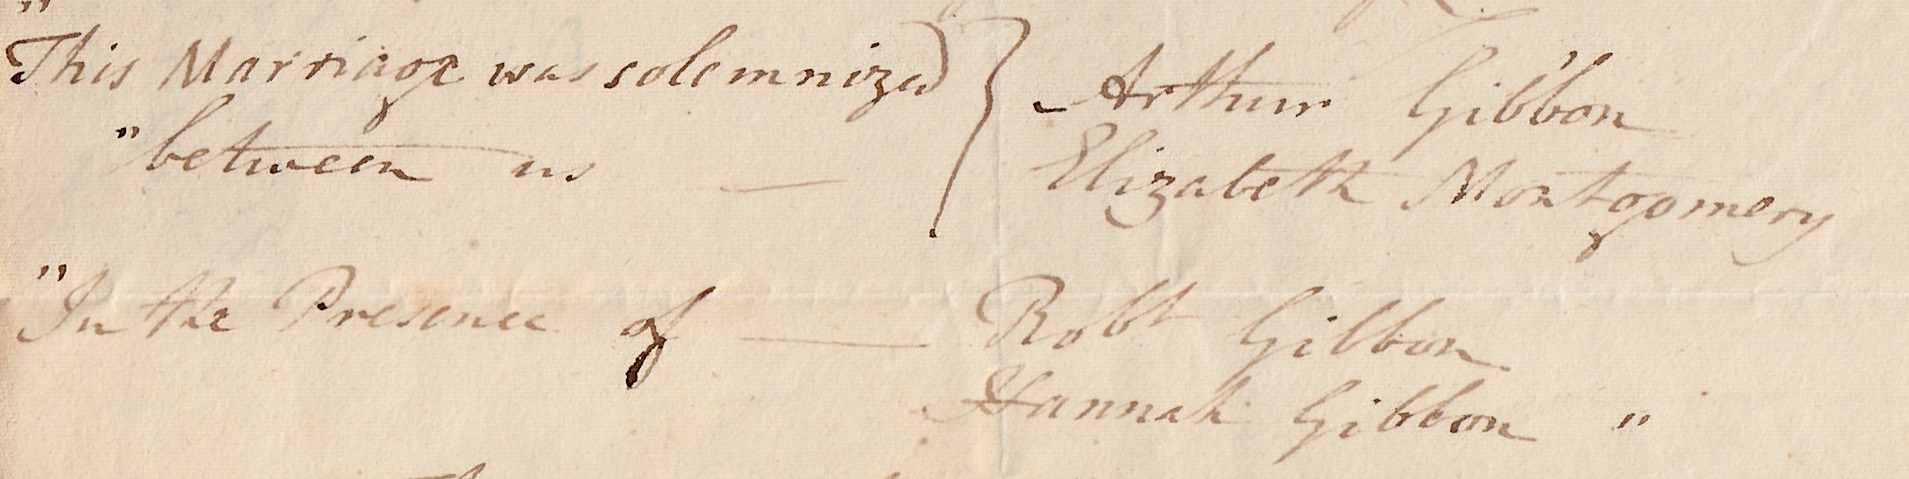 "
This Marriage was solemnized } Arthur Gibbon
"between us — Elizabeth Montgomery
"In the Presence of — Robt Gibbon
Hannah Gibbon "